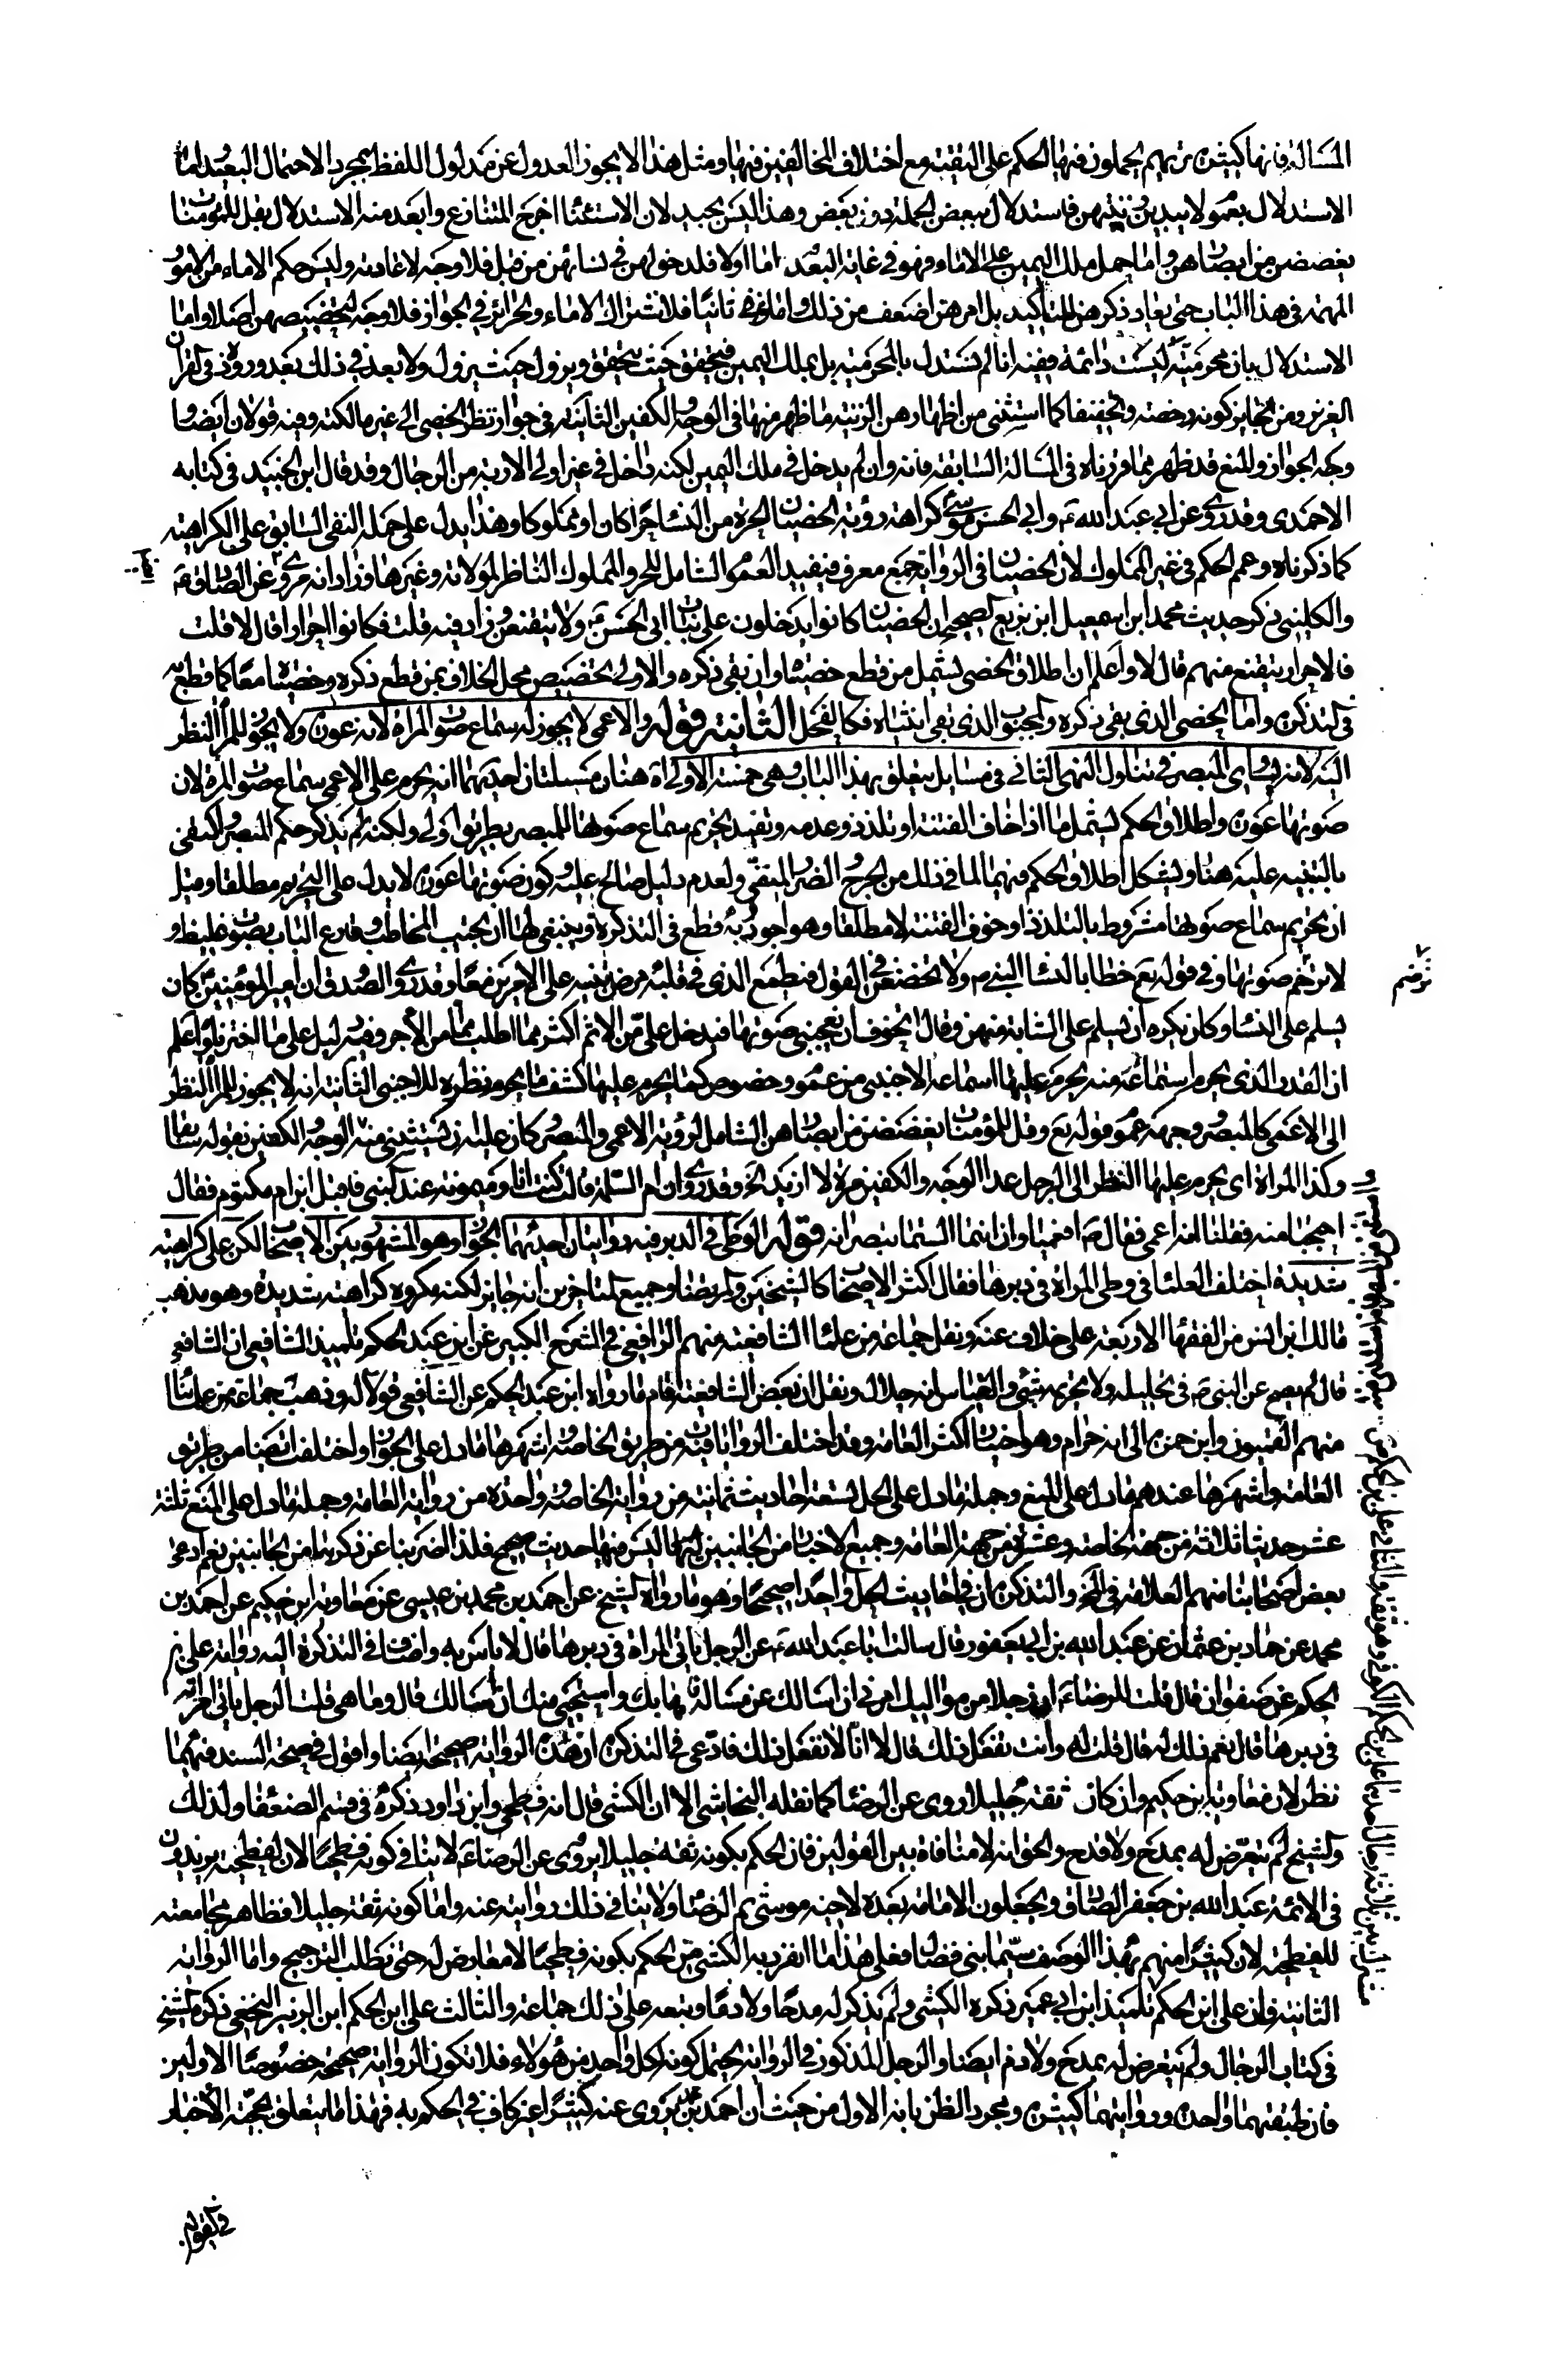 المسالة فانها كثيرة تريهم يحملون فيها الحكم على التقية مع اختلاف المخالفين فيها ومثل هذا لا يجوز العدول عن مدلول اللفظ بمجرد الاحتمال البعيد اما
الاستدلال بعموم لا يبدين زينتهن فاستدلال ببعض الجملة دون بعض وهذا ليس بجيد لان الاستثنا اخرج المتنازع وابعد منه الاستدلال بقل للمؤمنات
يغضضن من ابصارهن واما حمل ملك اليمين على الاماء فهو في غاية البعد اما اولا فلدخولهن في نسائهن من قبل فلا وجه لاعادته وليس حكم الاماء من الامور
المهمة في هذا الباب حتى يعاد ذكرهن للتاكيد بل امرهن اضعف من ذلك واما ثانيا فلاشتراك الاماء والحرائر في الجواز فلا وجه لتخصيصهن اصلا واما
الاستدلال بان محرميته ليست دائمة ففيه انا لم نستدل بالمحرمية بل بملك اليمين فيتحقق حيث يتحقق ويزول حيث يزول ولا بعد في ذلك بعد وروده في القران
العزيز ومن الجايز كونه رخصة وتخفيفا كما استثنى من اظهارهن الزينة ما ظهر منها في الوجه والكفين الثانية في جواز نظر الخصي الى غير مالكته وفيه قولان ايضا و
وجه الجواز والمنع قد ظهر مما قررناه في المسالة السابقة فانه وان لم يدخل في ملك اليمين لكنه داخل في غير اولي الاربة من الرجال وقد قال ابن الجنيد في كتابه
الاحمدي وقد روي عن ابي عبد الله ع وابي الحسن موسى ع كراهة رؤية الخصيان الحرة من النسا حرا كان او مملوكا وهذا يدل على حمله النفي السابق على الكراهة
كما ذكرناه وعمم الحكم في غير المملوك لان الخصيان في الرواية جمع معرف فيفيد العموم الشامل للحر والمملوك الناظر لمولاته وغيرها وزاد انه مروي عن الصادق ع
والكليني ذكر حديث محمد ابن اسمعيل ابن بزيع الصحيح ان الخصيان كانوا يدخلون على بنات ابي الحسن ع ولا يتقنعن وزاد فيه قلت فكانوا احرارا قال لا قلت
فالاحرار يتقنع منهم قال لا واعلم ان اطلاق الخصي يشمل من قطع خصيتاه وان بقي ذكره والاولى تخصيص محل الخلاف بمن قطع ذكره وخصيتاه معا كما قطع به
في التذكرة واما الخصي الذي بقي ذكره والمجبوب الذي بقي انثياه فكالفحل الثانية قوله والاعمى لا يجوز له سماع صوت المراة لانه عورة ولا يجوز للمراة النظر
اليه لانه يساوي المبصر في تناول النهي الثاني في مسايل يتعلق بهذا الباب وهي خمسة الاولى اه هنا مسئلتان احديهما انه يحرم على الاعمى سماع صوت المراة لان
صوتها عورة واطلاق الحكم يشمل ما اذا خاف الفتنة او تلذذ وعدمه ويفيد تحريم سماع صوتها للمبصر بطريق اولى ولكنه لم يذكر حكم المبصر واكتفى
بالتنبيه عليه هنا ويشكل اطلاق الحكم فيهما لما في ذلك من الحرج والضرر المنفي ولعدم دليل صالح عليه وكون صوتها عورة لا يدل على التحريم مطلقا وقيل
ان تحريم سماع صوتها مشروط بالتلذذ او خوف الفتنة لا مطلقا وهو اجود وبه قطع في التذكرة وينبغي لها ان تجيب المخاطب وقارع الباب بصوت غليظ و
لا ترخم صوتها وفي قوله تع خطابا لنساء النبي ص ولا تخضعن في القول فيطمع الذي في قلبه مرض تنبيه على الامرين معا وقد روى الصدوق ان امير المؤمنين ع كان
يسلم على النسا وكان يكره ان يسلم على الشابة منهن وقال اتخوف ان يعجبني صوتها فيدخل علي من الاثم اكثر مما اطلب من الاجر وفيه دليل على ما اخترناه واعلم
ان القدر الذي يحرم استماعه منه يحرم عليها اسماعه الاجنبي من عموم وخصوص كما يحرم عليها كشف ما يحرم نظره للاجنبي الثانية انه لا يجوز للمراة النظر
الى الاعمى كالمبصر وجهه عموم قوله تع وقل للمؤمنات يغضضن من ابصارهن الشامل لرؤية الاعمى والمبصر وكان عليه ان يستثني منه الوجه والكفين بقوله سابقا
وكذا المراة اي يحرم عليها النظر الى الرجل عدا الوجه والكفين مرة لا ازيد اه وقد روي ان ام سلمة قالت كنت انا وميمونة عند النبي فاقبل ابن ام مكتوم فقال
احتجبا منه فقلنا انه اعمى فقال ص افعمياوان انتما الستما تبصرانه قوله الوطي في الدبر فيه روايتان احديهما الجواز وهو المشهور بين الاصحاب لكن على كراهية
شديدة اختلف العلما في وطي المراة في دبرها فقال اكثر الاصحاب كالشيخين والمرتضى وجميع المتاخرين انه جايز لكنه مكروه كراهية شديدة وهو مذهب
مالك ابن انس من الفقها الاربعة على خلاف عنه ونقل جماعة من علما الشافعية منهم الرافعي في الشرح الكبير عن ابن عبد الحكم تلميذ الشافعي ان الشافعي
قال لم يصح عن النبي ص في تحليله ولا تحريمه شيء والقياس انه حلال ونقل ان بعض الشافعية اقام ما رواه ابن عبد الحكم عن الشافعي قولا له وذهب جماعة من علمائنا
منهم القميون وابن حمزة الى انه حرام وهو اختيار اكثر العامة وقد اختلف الروايات فيه من طريق الخاصة واشهرها ما دل على الجواز واختلف ايضا من طريق
العامة واشهرها عندهم ما دل على المنع وجملة ما دل على الحل تسعة احاديث ثمانية من رواية الخاصة وواحدة من رواية العامة وجملة ما دل على المنع ثلثة
عشر حديثا ثلاثة من جهة الخاصة وعشرة من جهة العامة وجميع الاخبار من الجانبين ليس فيها حديث صحيح فلذا اضربنا عن ذكرها من الجانبين نعم ادعى
بعض اصحابنا منهم العلامة في المختلف والتذكرة ان في احاديث الحل واحدا صحيحا وهو ما رواه الشيخ عن احمد بن محمد بن عيسى عن معاوية ابن حكيم عن احمد بن
محمد عن حماد بن عثمان عن عبد الله بن ابي يعفور قال سالت ابا عبد الله ع عن الرجل ياتي المراة في دبرها قال لا باس به واضاف في التذكرة اليه رواية علي بن
الحكم عن صفوان قال قلت للرضا ع ان رجلا من مواليك امرني ان اسالك عن مسالة هابك واستحيى منك ان يسالك قال وما هي قلت الرجل ياتي امراته
في دبرها قال نعم ذلك له قال قلت له وانت تفعل ذلك قال لا انا لا نفعل ذلك فادعى في التذكرة ان هذه الرواية صحيحة ايضا واقول في صحة السند فيهما
نظر لان معاوية بن حكيم وان كان ثقة جليلا روى عن الرضا كما نقله النجاشي الا ان الكشي قال انه فطحي وابن داود ذكره في قسم الضعفا ولذلك
والشيخ لم يتعرض له بمدح ولا قدح والحق انه لا منافاة بين القولين فان الحكم بكونه ثقة جليلا يروي عن الرضا ع لا ينافي كونه فطحيا لان الفطحية يزيدون
في الائمة عبد الله بن جعفر الصادق ويجعلون الامامة بعده لاخيه موسى ثم الرضا ولا ينافي ذلك روايته عنه واما كونه ثقة جليلا فظاهر مجامعته
للفطحية لان كثيرا منهم بهذا الوصف سيما بني فضال فعلى هذا ما انفرد به الكشي من الحكم بكونه فطحيا لا معارض له حتى يطلب الترجيح واما الرواية
الثانية فان علي ابن الحكم تلميذ ابن ابي عمير ذكره الكشي ولم يذكر له مدحا ولا ذما وتبعه على ذلك جماعة والثالث علي ابن الحكم ابن الزبير النخعي ذكره الشيخ
في كتاب الرجال ولم يتعرض له بمدح ولا ذم ايضا والرجل المذكور في الرواية يحتمل كونه كل واحد من هؤلاء فلا تكون الرواية صحيحة خصوصا الاولين
فان طبقتهما واحدة ورواياتهما كثيرة ومجرد الظن بانه الاول من حيث ان احمد بن محمد يروي عنه كثيرا غير كاف في الحكم به فهذا ما يتعلق بصحة الاخبار